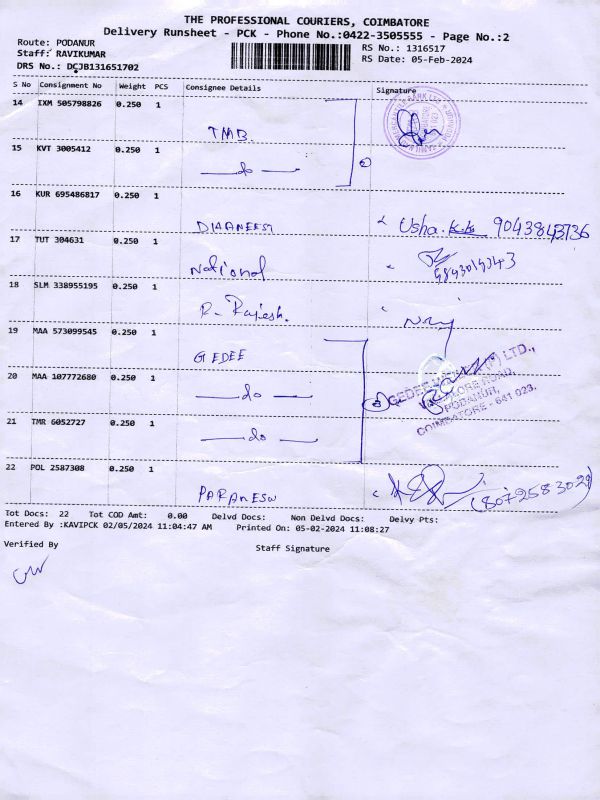 THE PROFESSIONAL COURIERS, COIMBATORE
Delivery Runsheet - PCK - Phone No.:0422-3505555 - Page No.:2
Route: PODANUR
RS No.: 1316517
Staff: RAVIKUMAR
RS Date: 05-Feb-2024
DRS No.: DCJB131651702
S No Consignment No Weight PCS Consignee Details Signature
14 IXM 505798826 0.250 1
TMB
15 KVT 3005412 0.250 1
— do —
16 KUR 695486817 0.250 1
DHANEESH Usha. K.K 9043843736
17 TUT 304631 0.250 1
National 9843019343
18 SLM 338955195 0.250 1
R. Rajesh.
19 MAA 573099545 0.250 1
GEDEE
20 MAA 107772680 0.250 1
— do —
(P) LTD.,
ROAD,
PODANUR,
COIMBATORE - 641 023.
21 TMR 6052727 0.250 1
— do —
22 POL 2587308 0.250 1
PARAMESW (8072583029)
Tot Docs: 22 Tot COD Amt: 0.00 Delvd Docs: Non Delvd Docs: Delvy Pts:
Entered By :KAVIPCK 02/05/2024 11:04:47 AM Printed On: 05-02-2024 11:08:27
Verified By
Staff Signature